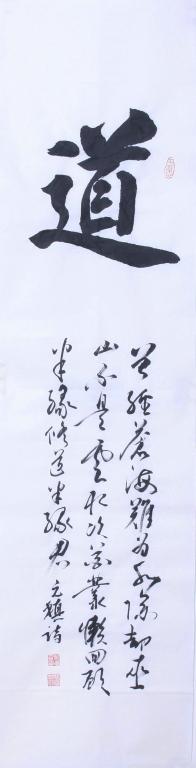 道
曾經蒼海難為水除卻巫
山不是雲取次花叢懶回顧
半緣修道半緣君 元稹詩